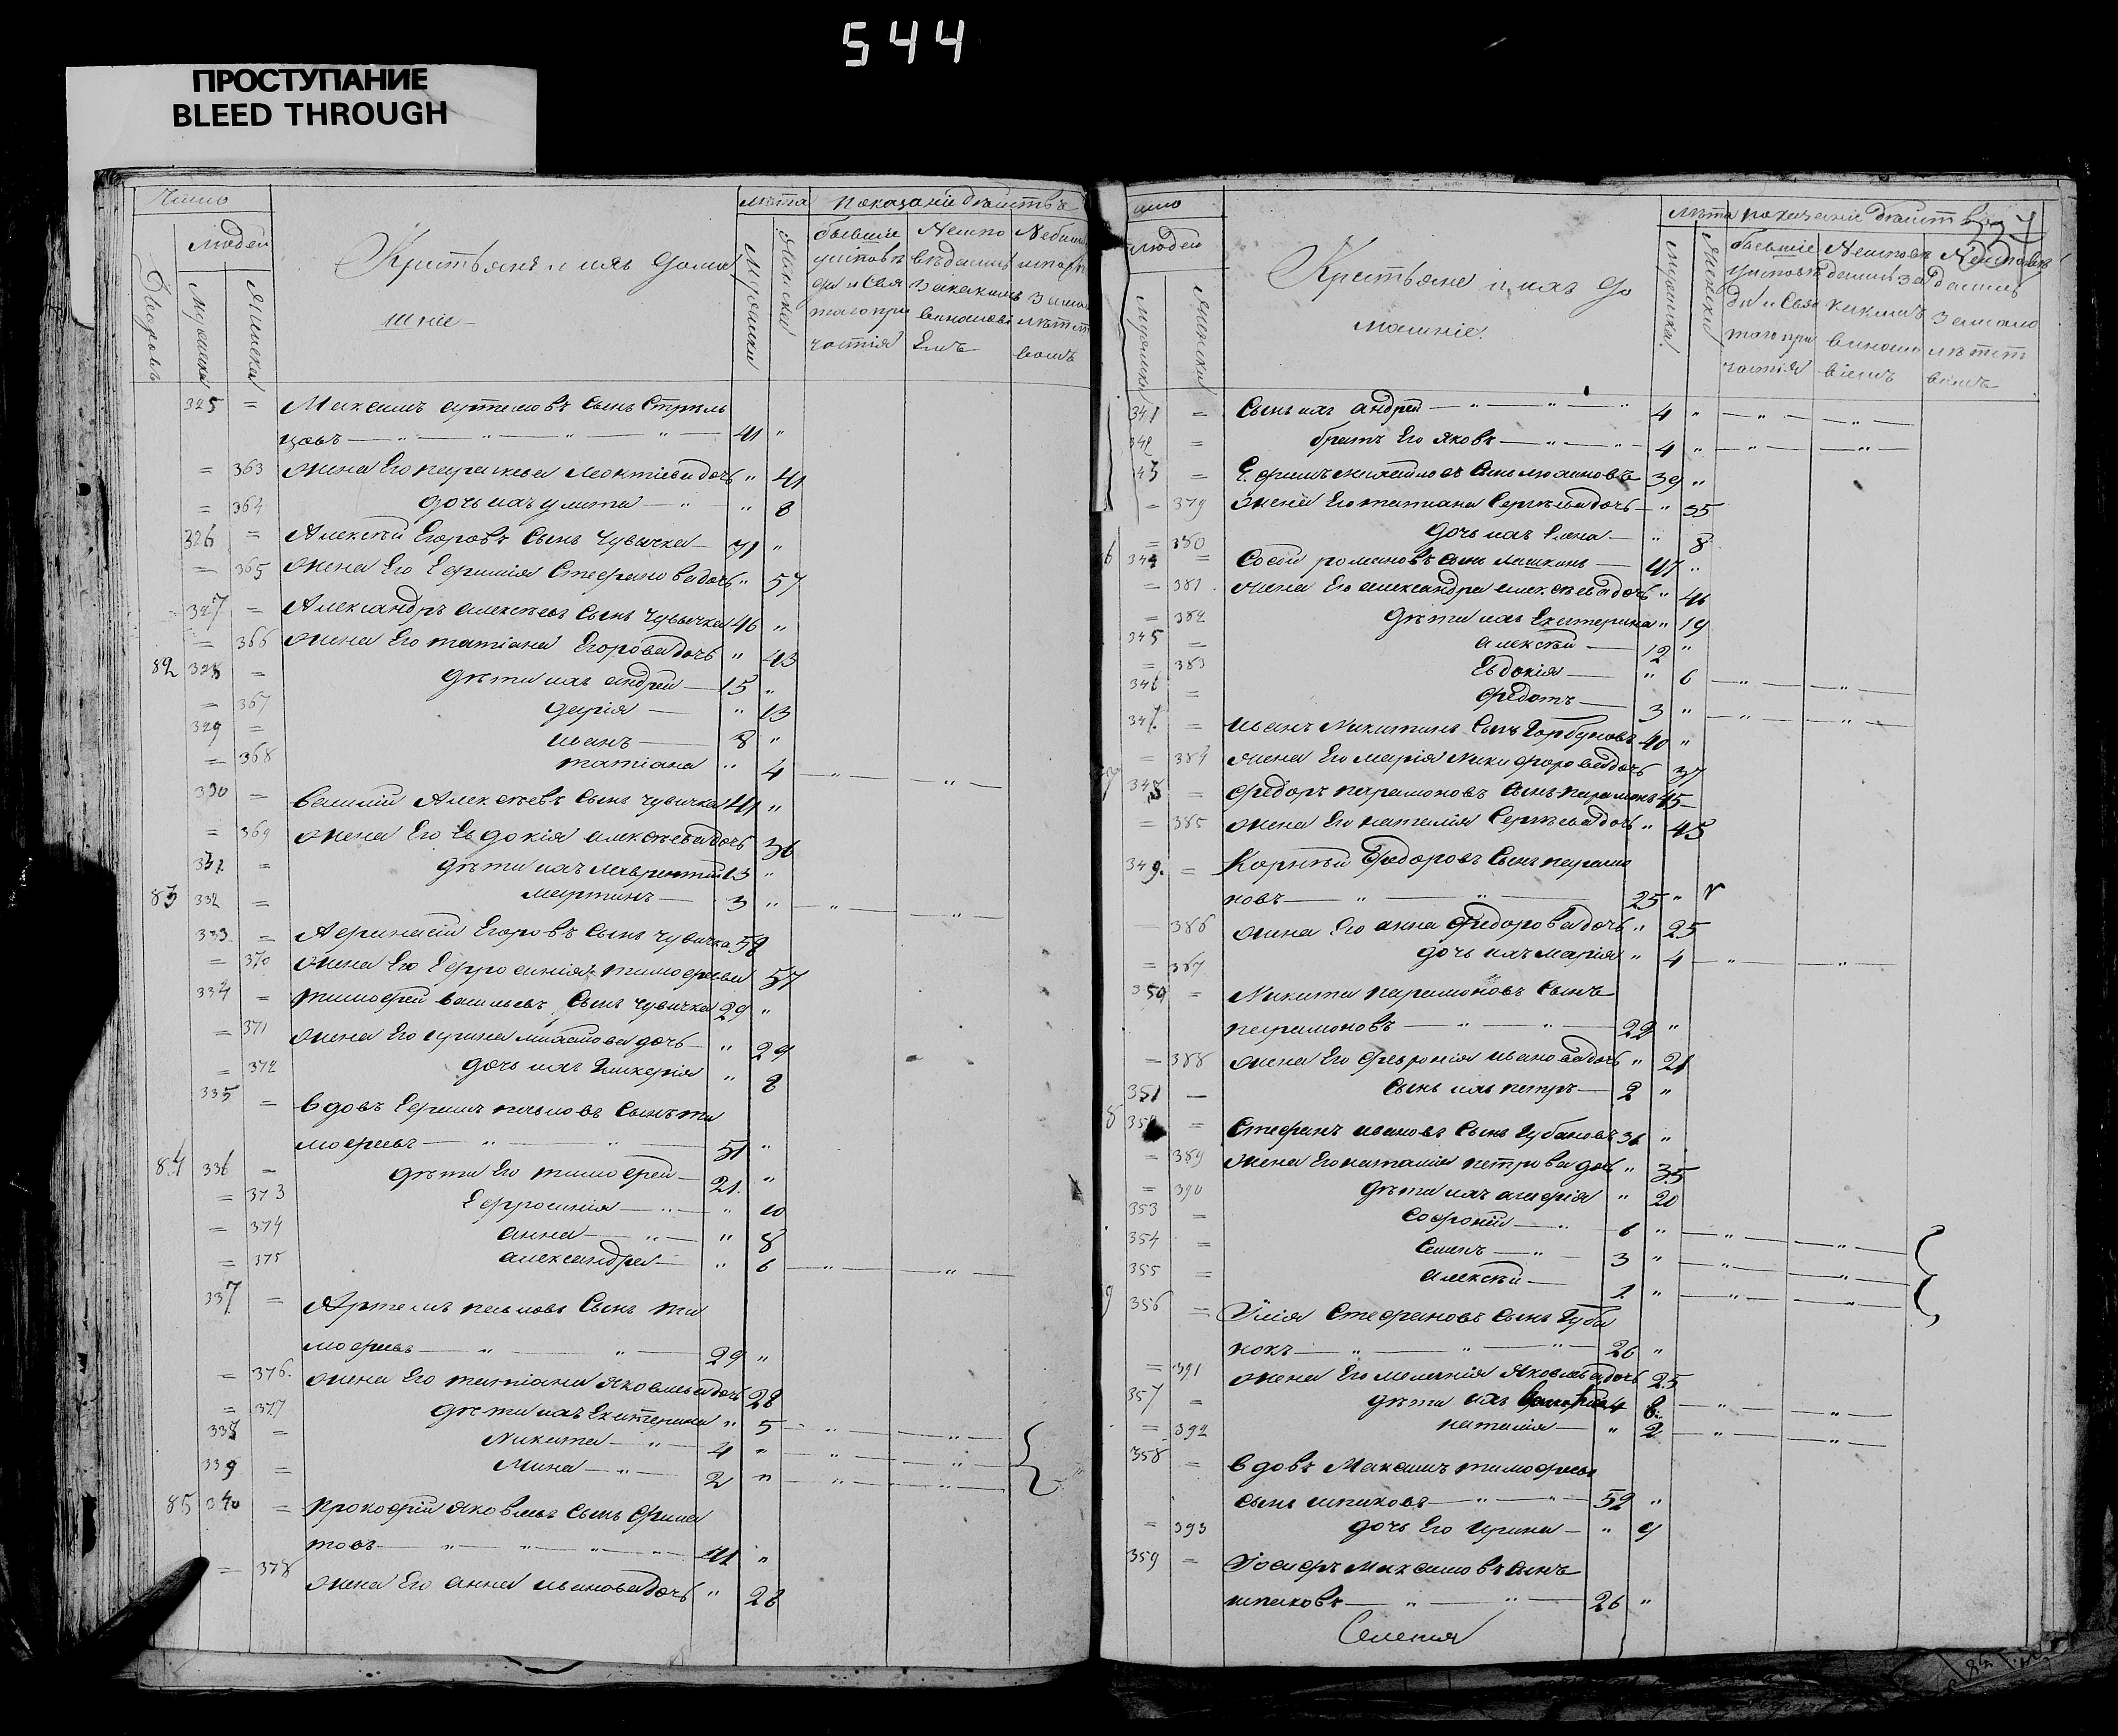 544
ПРОСТУПАНИЕ
BLEED THROUGH
Число
Людей
Дворовъ
Мужеска
Женска
Крестьяне и ихъ дома
шніе
лѣта
Мужеска
Женска
Показаніе дѣйствъ
бывшіе
у исповѣ
ди и Свя
таго при
частія
325 = Максимъ артемовъ Сынъ Стрѣль
цовъ 41 "
= 363 Жена Его параскева Леонтіева дочь " 41
= 364 дочь ихъ улита " 8
326 = Алексѣй Егоровъ Сынъ Чувичка 71 "
= 365 Жена Его Ефимія Стефанова дочь " 57
327 = Александръ алексѣевъ Сынъ Чувичка 46 "
= 366 Жена Его татіана Егорова дочь " 43
82 328 = дѣти ихъ андрей 15 "
= 367 дарія " 13
329 = иванъ 8 "
= 368 татіана " 4
330 = василій Алексѣевъ Сынъ чувичка 41 "
= 369 Жена Его Евдокія алексѣева дочь 36
331 = дѣти ихъ лаврентій 13 "
83 332 = мартинъ 3 "
333 = Афанасій Егоровъ Сынъ чувичка 58
= 370 Жена Его Ефросинія тимофеева 57
334 = тимофей васильевъ Сынъ чувичка 29 "
= 371 Жена Его ирина михайлова дочь " 29
= 372 дочь ихъ Гликерія " 8
335 = вдовъ Ефимъ павловъ Сынъ ти
мофеевъ 51 "
84 336 = дѣти Его тимофей 21 "
= 373 Ефросинія " 10
= 374 анна " 8
= 375 александра " 6
337 = Артемъ павловъ Сынъ ти
мофеевъ 29 "
= 376 Жена Его татіана яковлева дочь 28
= 377 дѣти ихъ Екатерина " 5
338 = Никита 4 "
339 = Мина 2 "
85 340 = Прокофій яковлевъ Сынъ Филиа
товъ 41 "
= 378 Жена Его анна иванова дочь " 28
число
людей
мужеска
женска
Крестьяне и ихъ до
машніе.
лѣта
мужеска
женска
показаніе дѣйствъ
бывшіе
у исповѣ
ди и Свя
таго при
частія
341 = Сынъ ихъ андрей 4 "
342 = братъ Его яковъ 4 "
43 = Ефимъ михайловъ Сынъ 39 "
= 379 Жена Его татиана Сергѣева дочь " 35
= 380 дочь ихъ Елена " 8
6 344 = Сосой романовъ Сынъ Лашкинъ 47 "
= 381 Жена Его александра алексѣева дочь " 46
= 382 дѣти ихъ Екатерина " 19
345 = алексѣй 12 "
= 383 Евдокія " 6
346 = Федотъ 3 "
347 = иванъ Никитинъ Сынъ Горбуновъ 40 "
= 384 Жена Его марія Никифорова дочь 37
348 = Федоръ парамоновъ Сынъ парамонъ 45
= 385 Жена Его наталія Сергѣева дочь " 45
349 = Корнѣй Федоровъ Сынъ парамо
новъ 25 "
386 Жена Его анна Федорова дочь " 25
= 387 дочь ихъ марія " 4
350 = Никита парамоновъ Сынъ
парамоновъ 22 "
= 388 Жена Его Февронія иванова дочь " 21
351 = Сынъ ихъ петръ 2 "
8 352 = Стефанъ ивановъ Сынъ Губановъ 36 "
= 389 Жена Его наталія петрова дочь " 35
= 390 дѣти ихъ " 20
353 = Софроній 6 "
354 = Семенъ 3 "
355 = алексѣй 1 "
9 356 = Илія Стефановъ Сынъ Губа
новъ 26 "
= 391 Жена Его меланія Яковлева дочь 25
357 = дѣти ихъ 4
= 392 наталія " 2
358 = вдовъ Максимъ тимофеевъ
сынъ шпаковъ 52 "
= 393 дочь Его ирина " 9
359 = Іосифъ Максимовъ сынъ
шпаковъ 26 "
Селенія